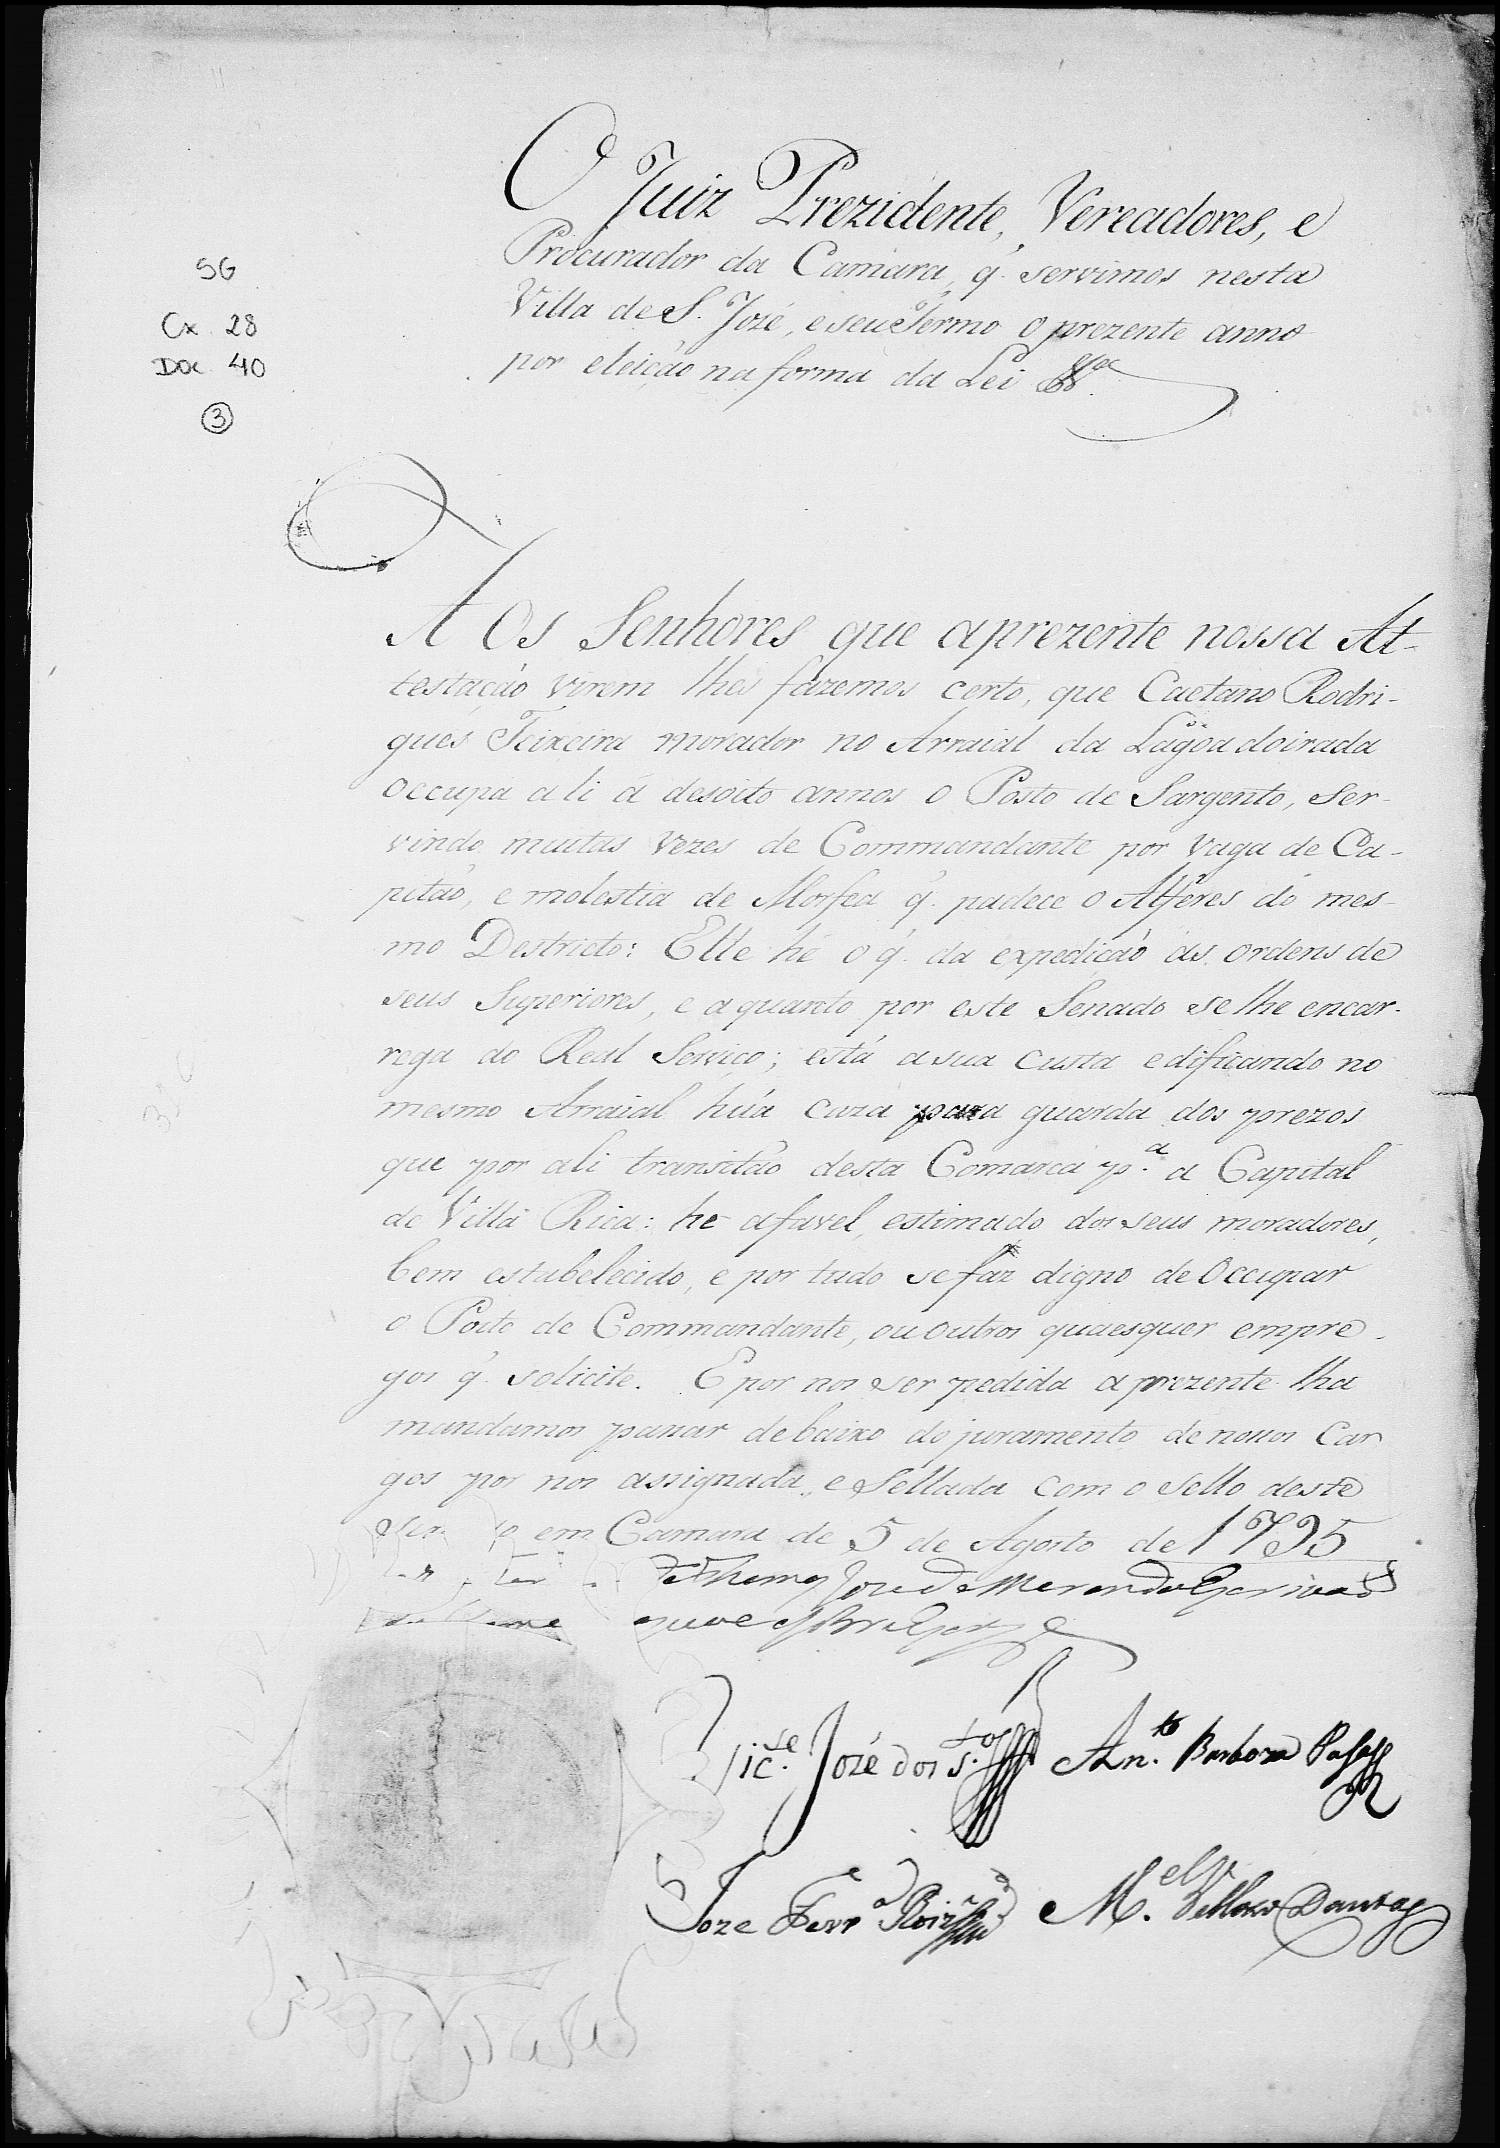 SG
Cx. 28
Doc 40
3
O Juiz Prezidente, Vereadores, e
Procurador da Camara, q. servimos nesta
Villa de S. Jozé, e seu Termo o prezente anno
por eleicáo na forma da Lei &ca
Aos Senhores que a prezente nossa At-
testacáo virem lhes fazemos certo, que Caetano Rodri-
gues Teixeira morador no Arraial da Lagoa doirada
occupa ali á desoito annos o Posto de Sargento, ser-
vindo muitas vezes de Commandante por vaga de Ca-
pitáo, e molestia de Morfea q. padece o Alferes do mes-
mo Destricto: Elle hé o q. da expedicáo ás ordens de
seus Superiores, e a quanto por este Senado se lhe encar-
rega do Real Servico; está a sua custa edificando no
mesmo Arraial húa caza para guarda dos prezos
que por ali transitáo desta Comarca p.a a Capital
de Villa Rica: he afavel, estimado dos seus moradores,
bem estabelecido, e por tudo se faz digno de occupar
o Posto de Commandante, ou outros quaesquer empre-
gos q. solicite. E por nos ser pedida a prezente lha
mandamos passar debaixo do juramento de nossos Car
gos por nos assignada, e Sellada com o Sello deste
em Camara de 5 de Agosto de 1795
Joze de Meranda Escrivaó
Vic.te Jozé dos S.tos An.to Barboza
Joze Ferr.a Roiz M.el Vellozo Dantas